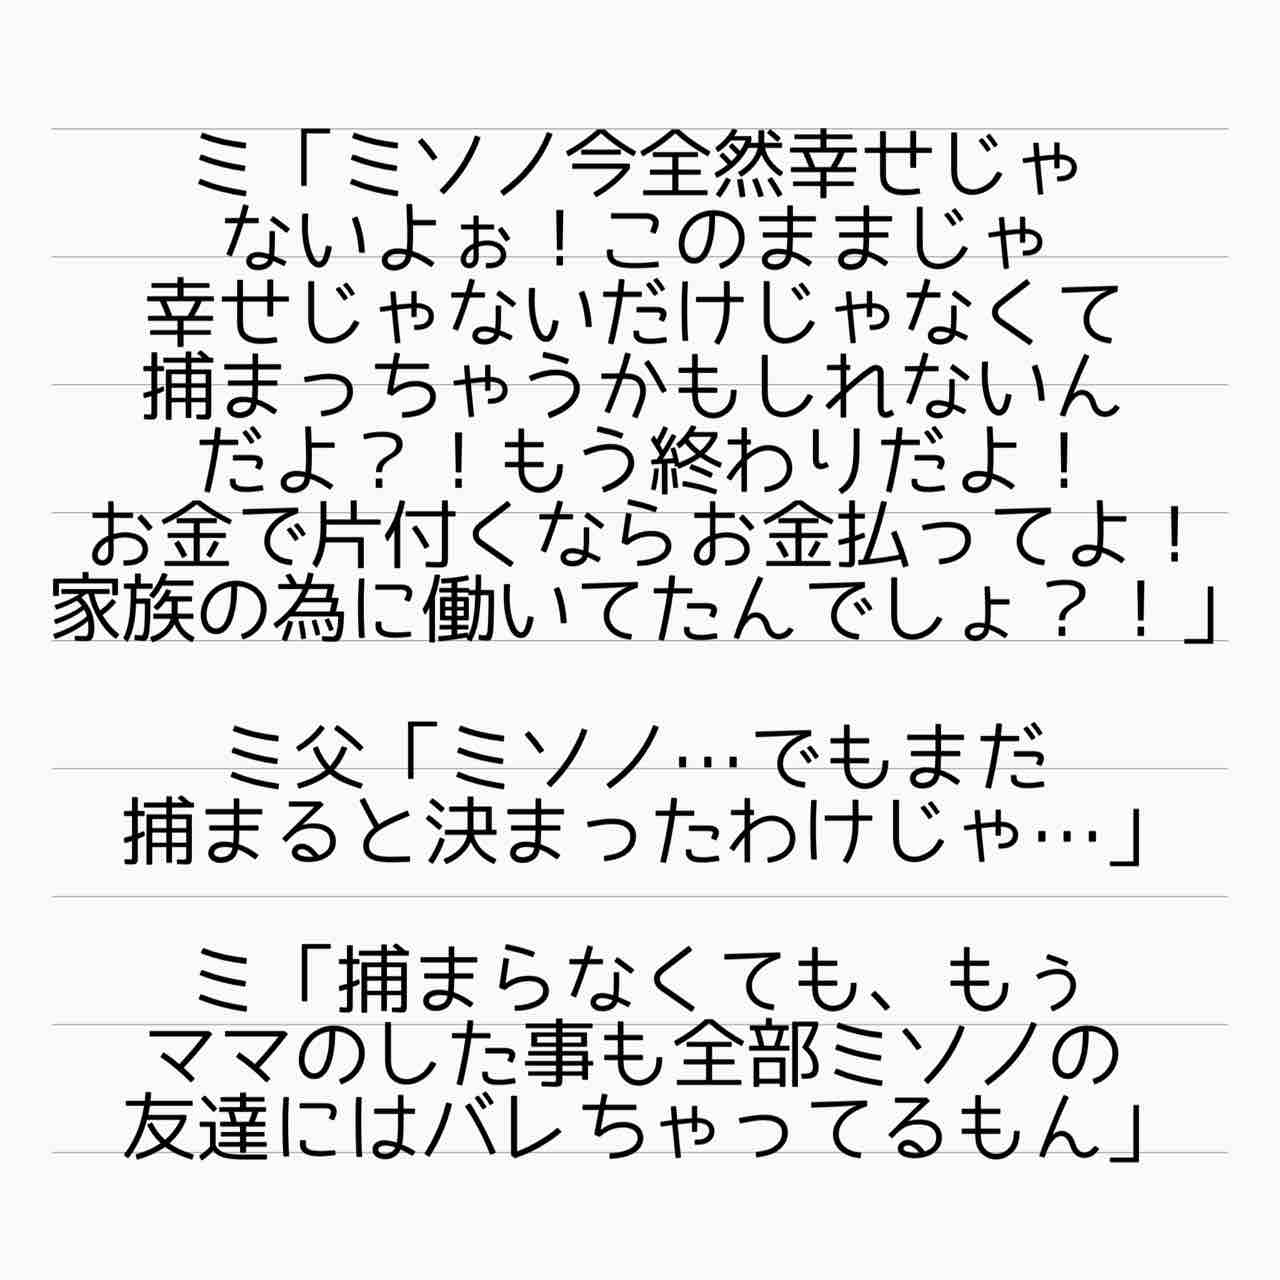 ミ「ミソノ今全然幸せじゃ
ないよぉ！このままじゃ
幸せじゃないだけじゃなくて
捕まっちゃうかもしれないん
だよ？！もう終わりだよ！
お金で片付くならお金払ってよ！
家族の為に働いてたんでしょ？！」
ミ父「ミソノ…でもまだ
捕まると決まったわけじゃ…」
ミ「捕まらなくても、もぅ
ママのした事も全部ミソノの
友達にはバレちゃってるもん」